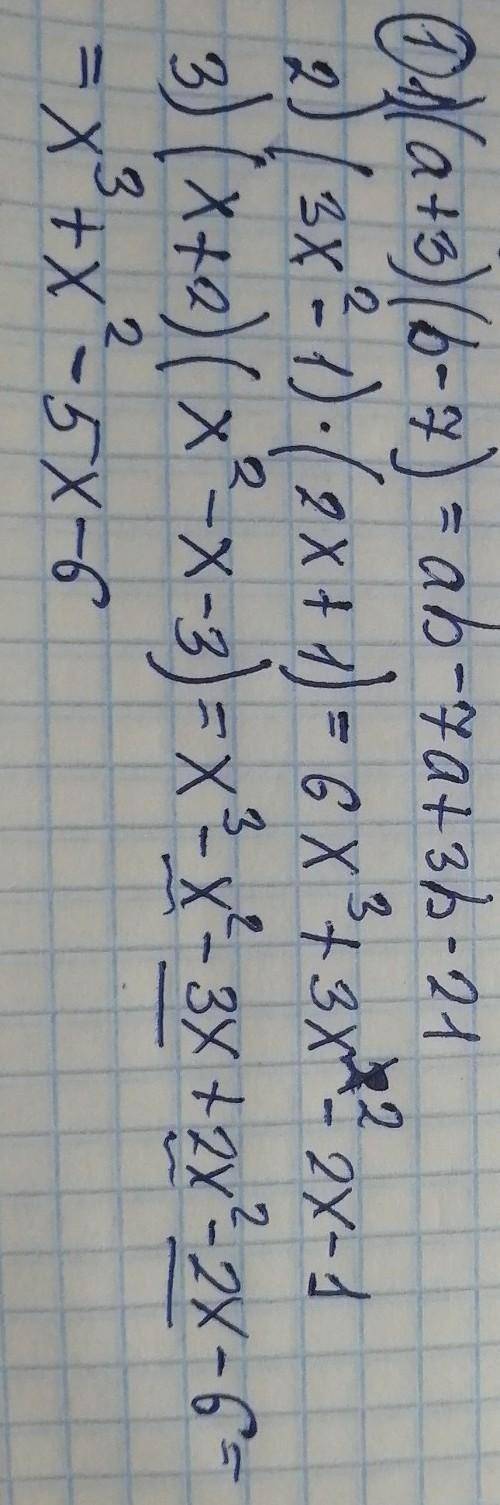 ① 1) (a+3)(b-7) = ab-7a+3b-21
2) (3x²-1)·(2x+1) = 6x³+3x²-2x-1
3) (x+2)(x²-x-3) = x³-x²-3x+2x²-2x-6=
= x³+x²-5x-6